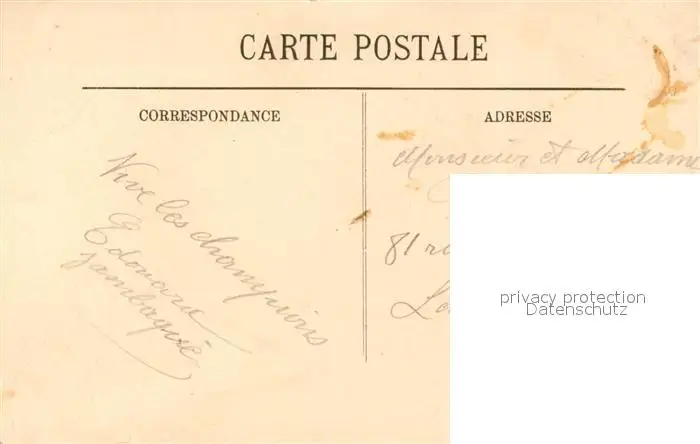 CARTE POSTALE
CORRESPONDANCE
Vive les champions
Edouard
ADRESSE
Monsieur et Madame
81
privacy protection
Datenschutz